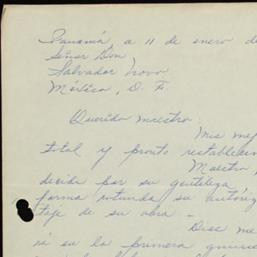 Panamá, a 11 de enero de
Señor Don
Salvador Novo
México, D. F.
Querido maestro:
Mis mej
total y pronto restablecim
Maestro
decida por su gentileza
forma rotunda su autoriz
taje de su obra -
Dice me
la primera